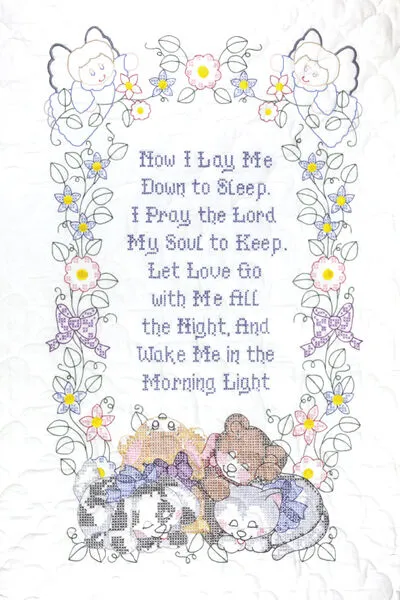 Now I Lay Me
Down to Sleep.
I Pray the Lord
My Soul to Keep.
Let Love Go
with Me All
the Night, And
Wake Me in the
Morning Light